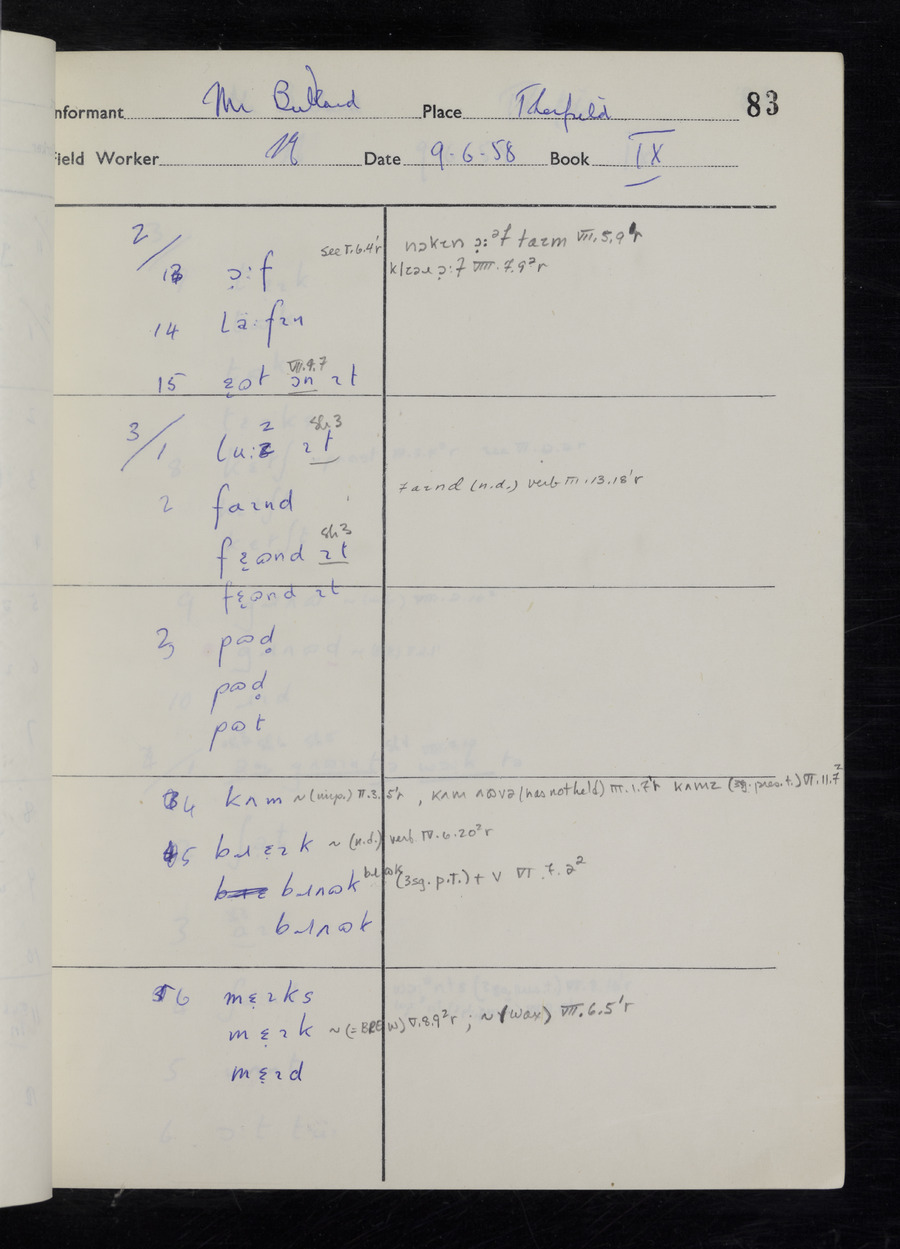 Informant Mr Bullard Place Therfield 83
Field Worker Date 9.6.58 Book IX
2/
13 ɔ̣:f see V.6.4'r nɔkɪn ɔ̣:ᵊf taɪm VII.5.9'r
VIII.7.9²r
14 lä:fɪn
15 ɛ̣ɷt ɔn ɪt VII.9.7
3/1 lu:z ɪt sh 3
2 faɪnd faɪnd (n.d.) verb III.13.18'r
fɛ̣ɷnd ɪt sh 3
fɛ̣ɷnd ɪt
3 pɷd̥
pɷd̥
pɷt
4 kʌm ~ (imp.) II.3.5'r, kʌm ʌɷvə (has not held) III.1.7'r kʌmz (3sg. pres. t.) VI.11.7²
5 bɹɛ̣ɪk ~ (n.d.) verb IV.6.20²r
bɹʌɷk bɹɷk (3sg. p.t.) + V VI.7.2²
bɹʌɷk
6 mɛ̣ɪks
mɛ̣ɪk ~ (= BREW) V.8.9²r; ~ (wax) VII.6.5'r
mɛ̣ɪd